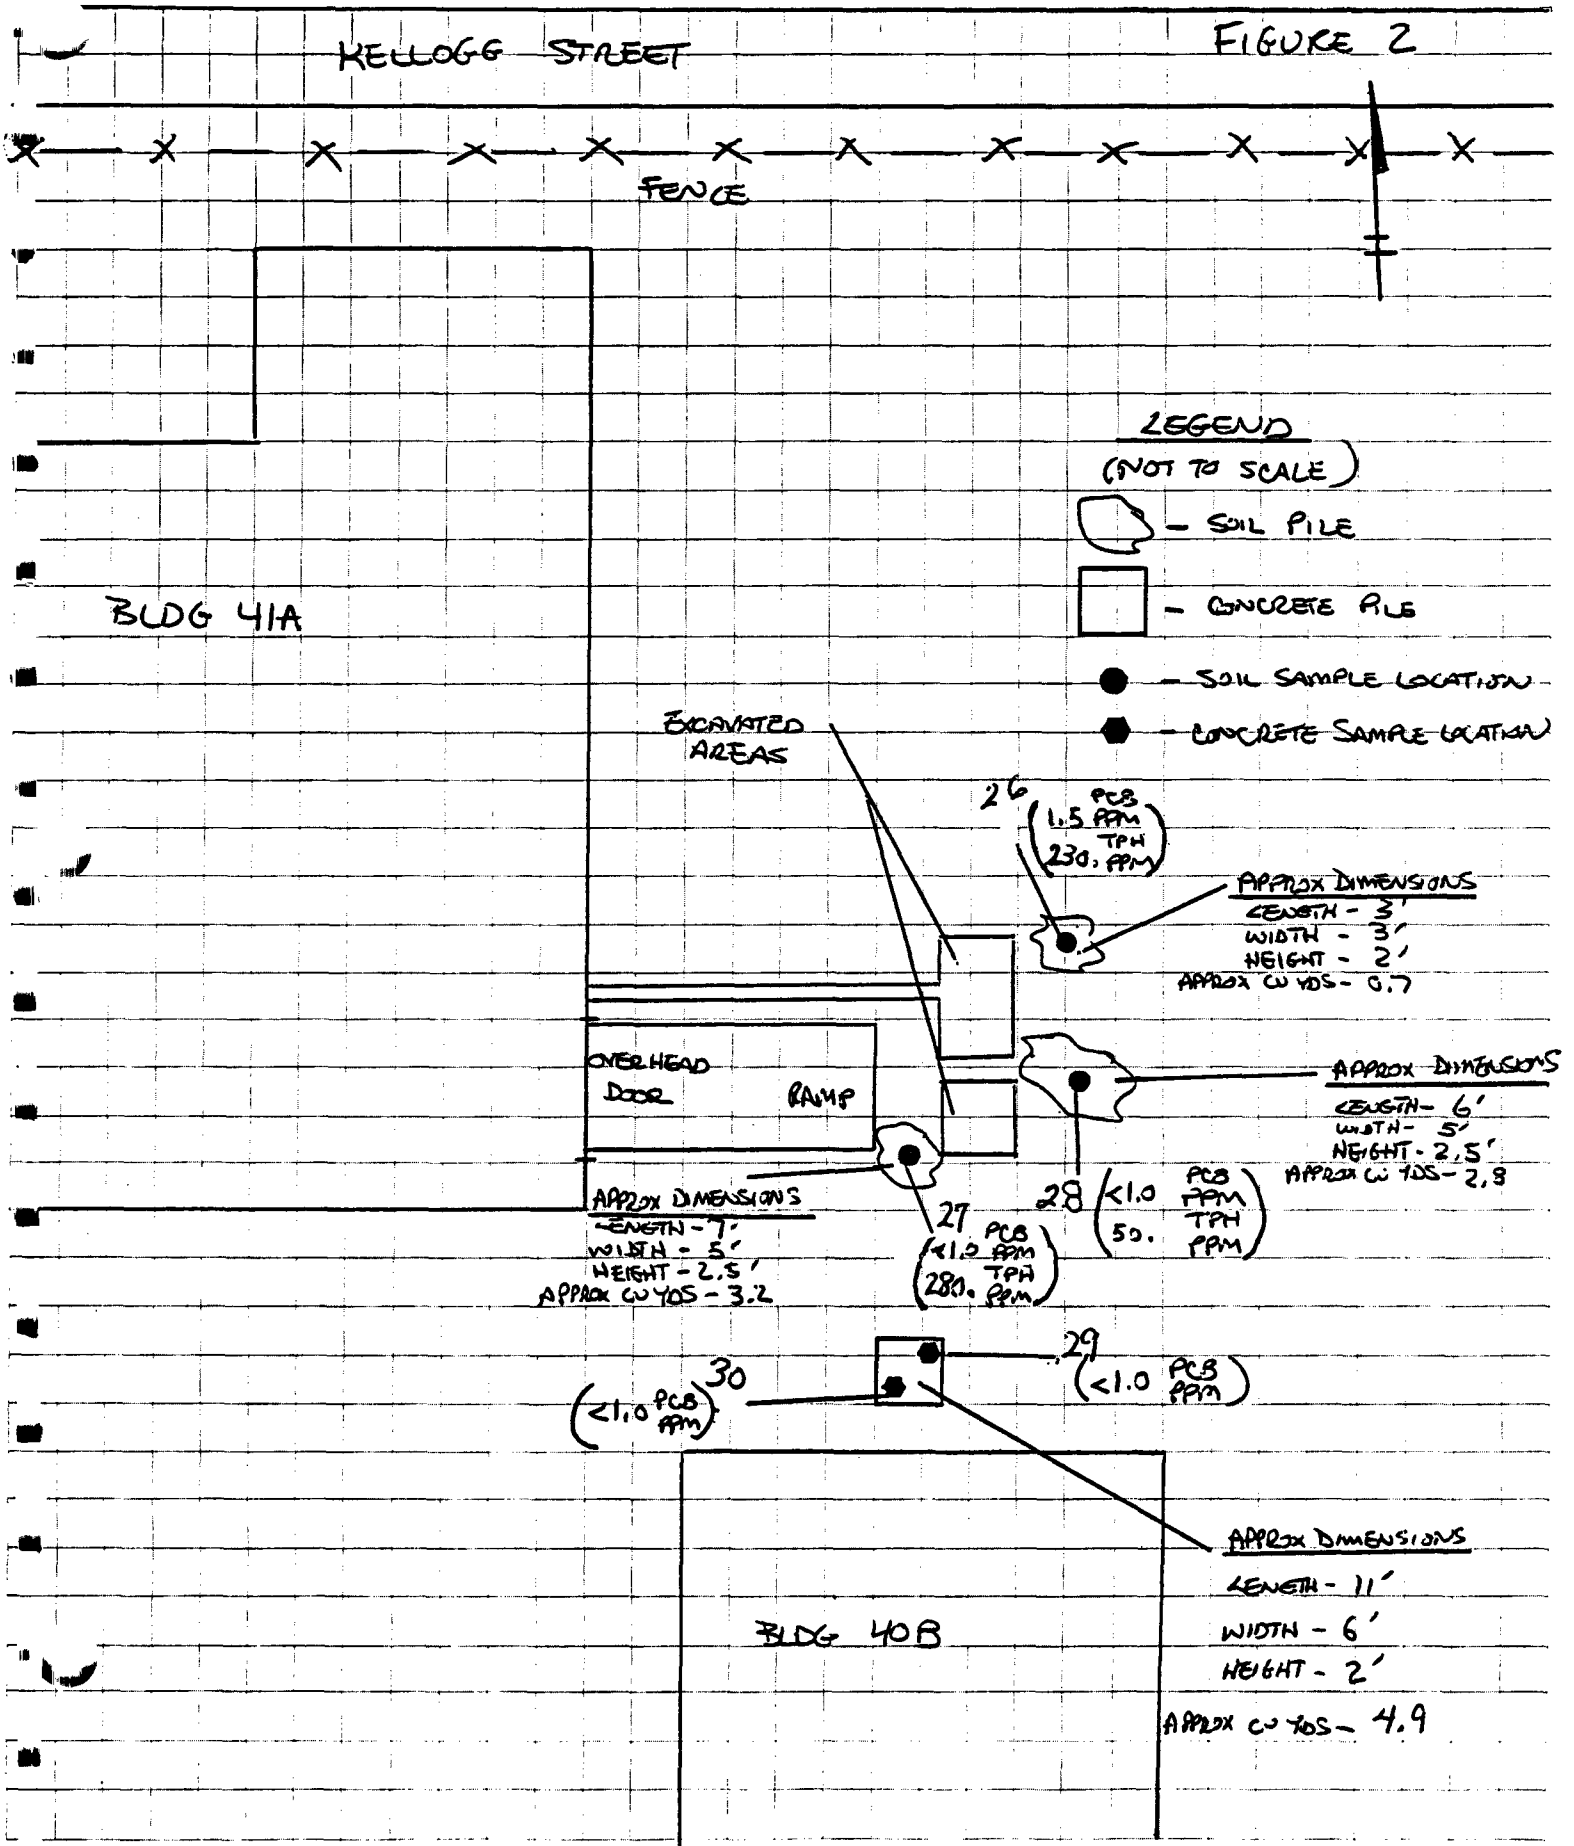 KELLOGG STREET
FIGURE 2
FENCE
LEGEND
(NOT TO SCALE)
- SOIL PILE
- CONCRETE PILE
- SOIL SAMPLE LOCATION
- CONCRETE SAMPLE LOCATION
BLDG 41A
EXCAVATED
AREAS
26
PCB
1.5 PPM
TPH
230. PPM
APPROX DIMENSIONS
LENGTH - 3'
WIDTH - 3'
HEIGHT - 2'
APPROX CU YDS - 0.7
OVERHEAD
DOOR
RAMP
APPROX DIMENSIONS
LENGTH - 6'
WIDTH - 5'
HEIGHT - 2.5'
APPROX CU YDS - 2.8
28
<1.0 PCB
PPM
50. TPH
PPM
APPROX DIMENSIONS
LENGTH - 7'
WIDTH - 5'
HEIGHT - 2.5'
APPROX CU YDS - 3.2
27
PCB
<1.0 PPM
TPH
280. PPM
29
(<1.0 PCB
PPM)
30
(<1.0 PCB
PPM)
APPROX DIMENSIONS
LENGTH - 11'
WIDTH - 6'
HEIGHT - 2'
APPROX CU YDS - 4.9
BLDG 40B